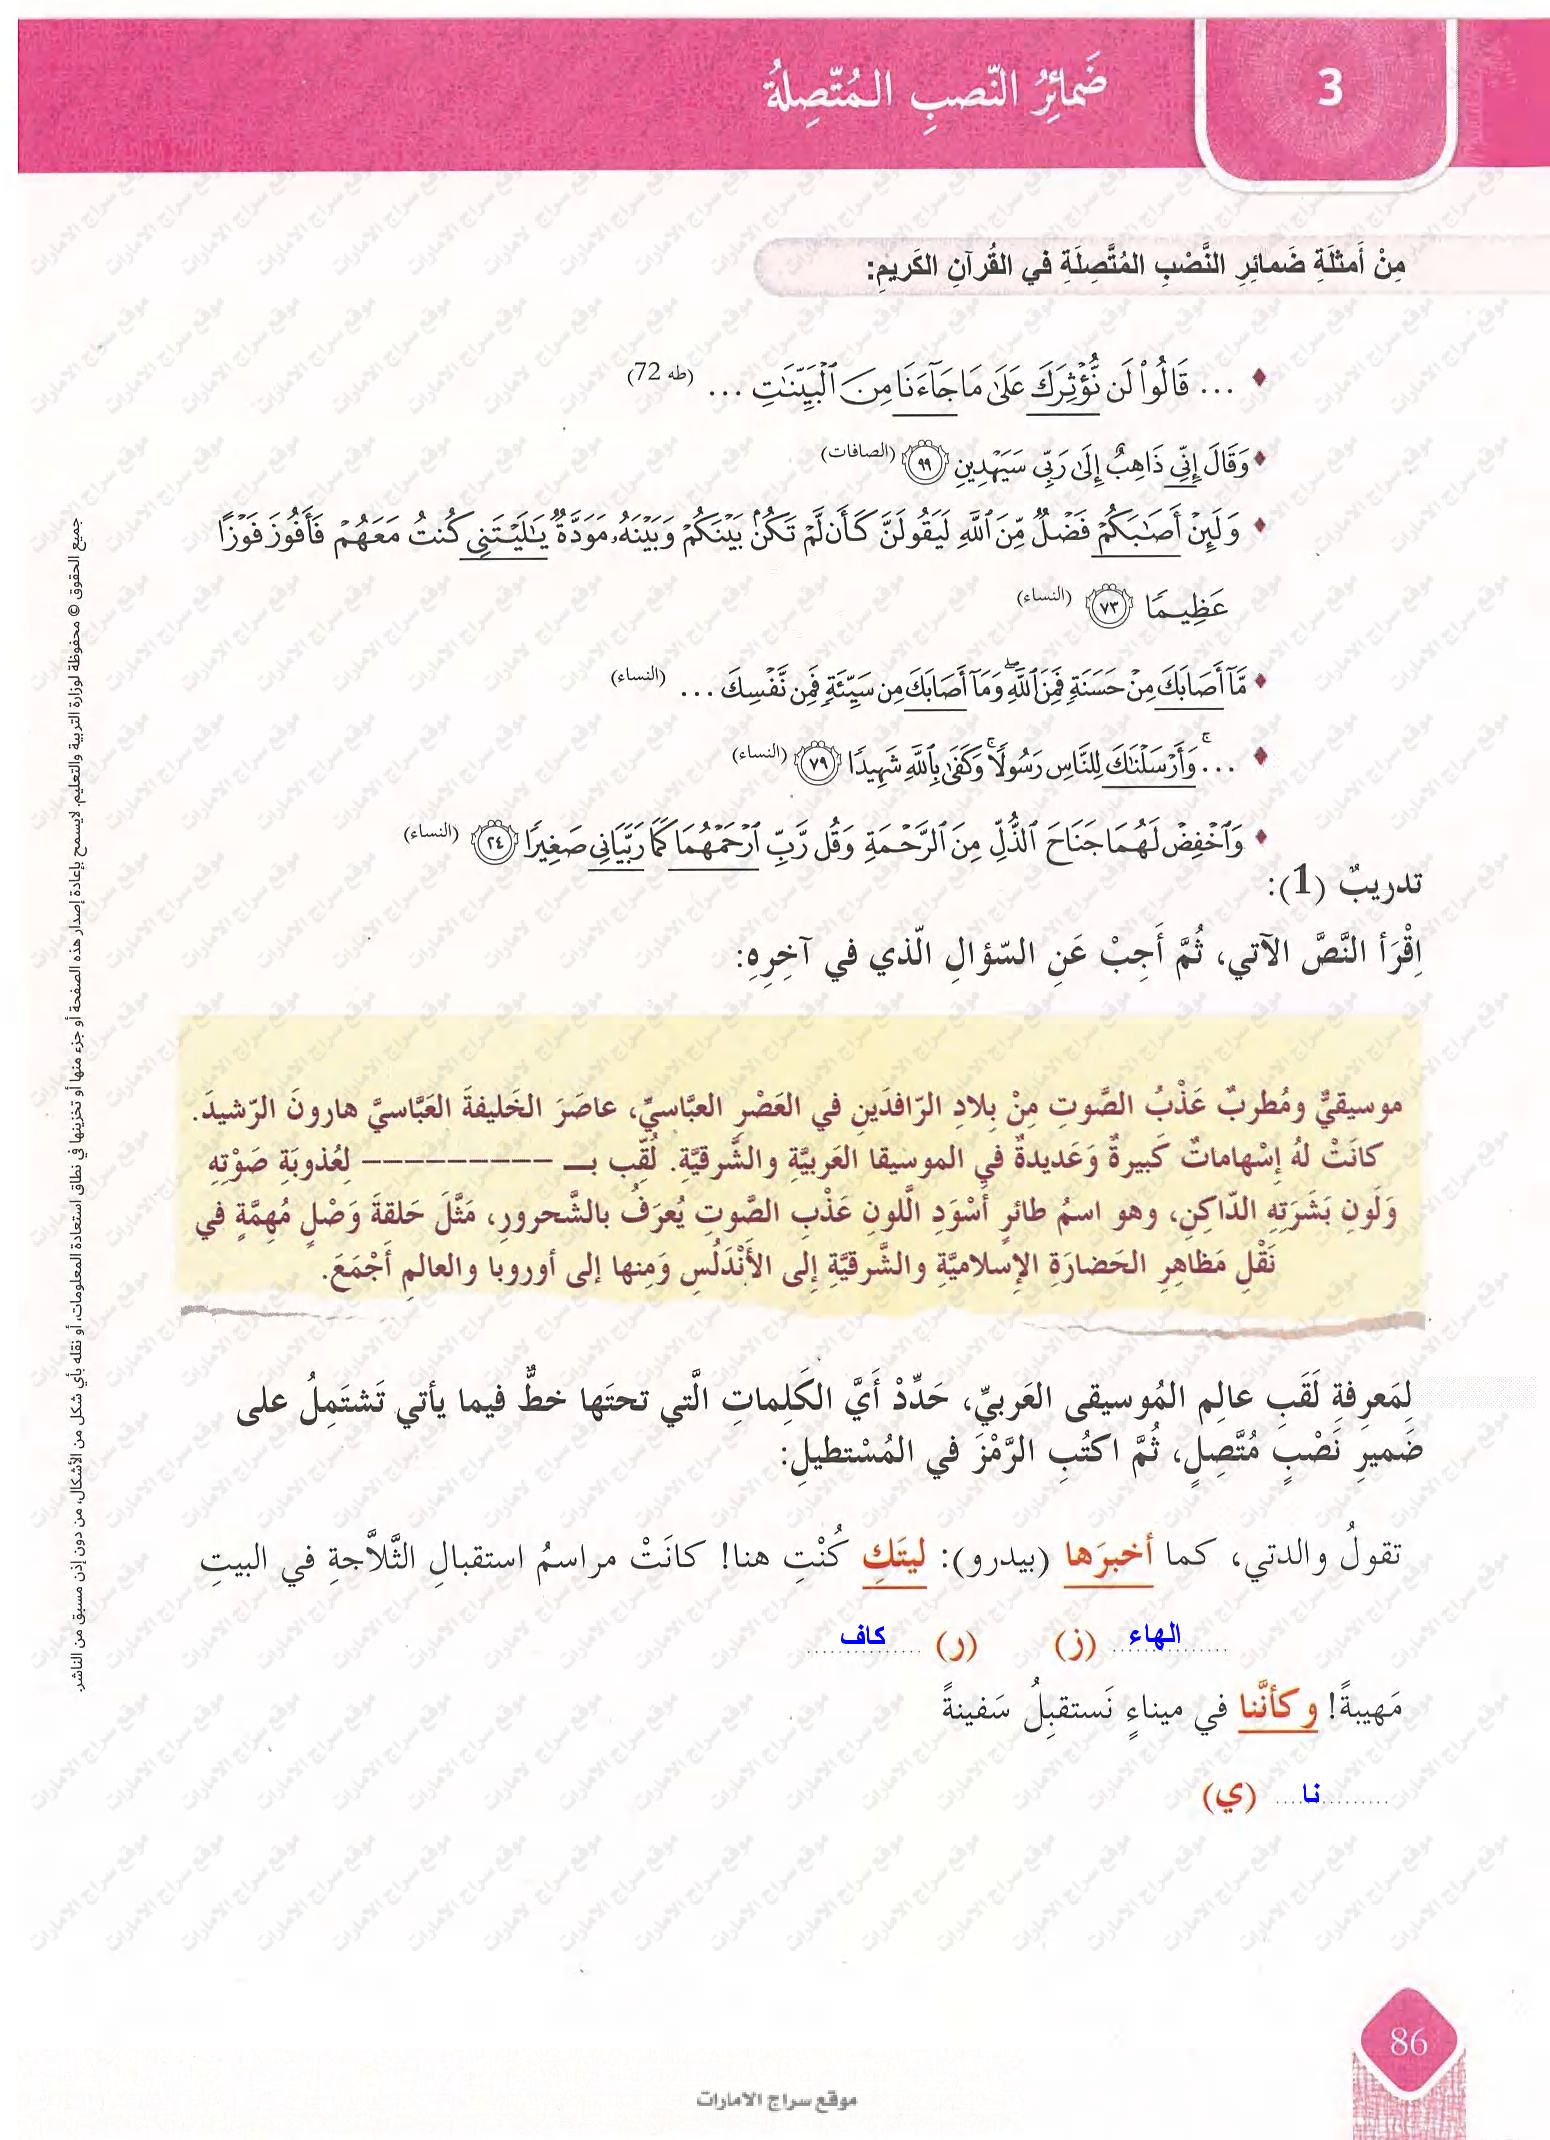 3
ضَمائِرُ النّصبِ المُتّصِلةُ
مِنْ أَمثلَةِ ضَمائرِ النَّصْبِ المُتَّصِلَةِ في القُرآنِ الكَريمِ:
... قَالُوا۟ لَن نُّؤْثِرَكَ عَلَىٰ مَا جَآءَنَا مِنَ ٱلْبَيِّنَٰتِ ... (طه 72)
وَقَالَ إِنِّى ذَاهِبٌ إِلَىٰ رَبِّى سَيَهْدِينِ ٩٩ (الصافات)
وَلَئِنْ أَصَٰبَكُمْ فَضْلٌ مِّنَ ٱللَّهِ لَيَقُولَنَّ كَأَن لَّمْ تَكُنۢ بَيْنَكُمْ وَبَيْنَهُۥ مَوَدَّةٌ يَٰلَيْتَنِى كُنتُ مَعَهُمْ فَأَفُوزَ فَوْزًا
عَظِيمًا ٧٣ (النساء)
مَّآ أَصَابَكَ مِنْ حَسَنَةٍ فَمِنَ ٱللَّهِ ۖ وَمَآ أَصَابَكَ مِن سَيِّئَةٍ فَمِن نَّفْسِكَ ... (النساء)
... ۚ وَأَرْسَلْنَٰكَ لِلنَّاسِ رَسُولًا ۚ وَكَفَىٰ بِٱللَّهِ شَهِيدًا ٧٩ (النساء)
وَٱخْفِضْ لَهُمَا جَنَاحَ ٱلذُّلِّ مِنَ ٱلرَّحْمَةِ وَقُل رَّبِّ ٱرْحَمْهُمَا كَمَا رَبَّيَانِى صَغِيرًا ٢٤ (النساء)
تدريبٌ (1):
اِقْرَأ النَّصَّ الآتي، ثُمَّ أَجِبْ عَنِ السّؤالِ الّذي في آخِرِهِ:
موسيقيٌّ ومُطربٌ عَذْبُ الصَّوتِ مِنْ بِلادِ الرّافدَينِ في العَصْرِ العبَّاسيِّ، عاصَرَ الخَليفةَ العَبَّاسيَّ هارونَ الرّشيدَ.
كانَتْ لهُ إسْهاماتٌ كَبيرةٌ وَعَديدةٌ في الموسيقا العَربيَّةِ والشَّرقيَّةِ. لُقِّب بـ ---------- لِعُذوبَةِ صَوْتِهِ
وَلَونِ بَشَرَتِهِ الدّاكِنِ، وهو اسمُ طائرٍ أسْوَدِ اللَّونِ عَذْبِ الصَّوتِ يُعرَفُ بالشَّحرورِ، مَثَّلَ حَلقةَ وَصْلٍ مُهمَّةٍ في
نَقْلِ مَظاهِرِ الحَضارَةِ الإسلاميَّةِ والشَّرقيَّةِ إلى الأَنْدَلُسِ وَمِنها إلى أوروبا والعالمِ أجْمَعَ.
لِمَعرِفةِ لَقَبِ عالِمِ المُوسيقى العَربيِّ، حَدِّدْ أَيَّ الكَلِماتِ الَّتي تحتَها خطٌّ فيما يأتي تَشتَمِلُ على
ضَميرِ نَصْبٍ مُتَّصِلٍ، ثُمَّ اكتُبِ الرَّمْزَ في المُسْتطيلِ:
تقولُ والدتي، كما أخبرَها (بيدرو): ليتَكِ كُنْتِ هنا! كانَتْ مراسمُ استقبالِ الثَّلاَّجةِ في البيتِ
الهاء (ز) (ر) كاف
مَهيبةً! وكأنَّنا في ميناءٍ نَستقبِلُ سَفينةً
نا (ي)
جميع الحقوق © محفوظة لوزارة التربية والتعليم. لايسمح بإعادة إصدار هذه الصفحة أو جزء منها أو تخزينها في نطاق استعادة المعلومات، أو نقله بأي شكل من الأشكال، من دون إذن مسبق من الناشر.
86
موقع سراج الامارات